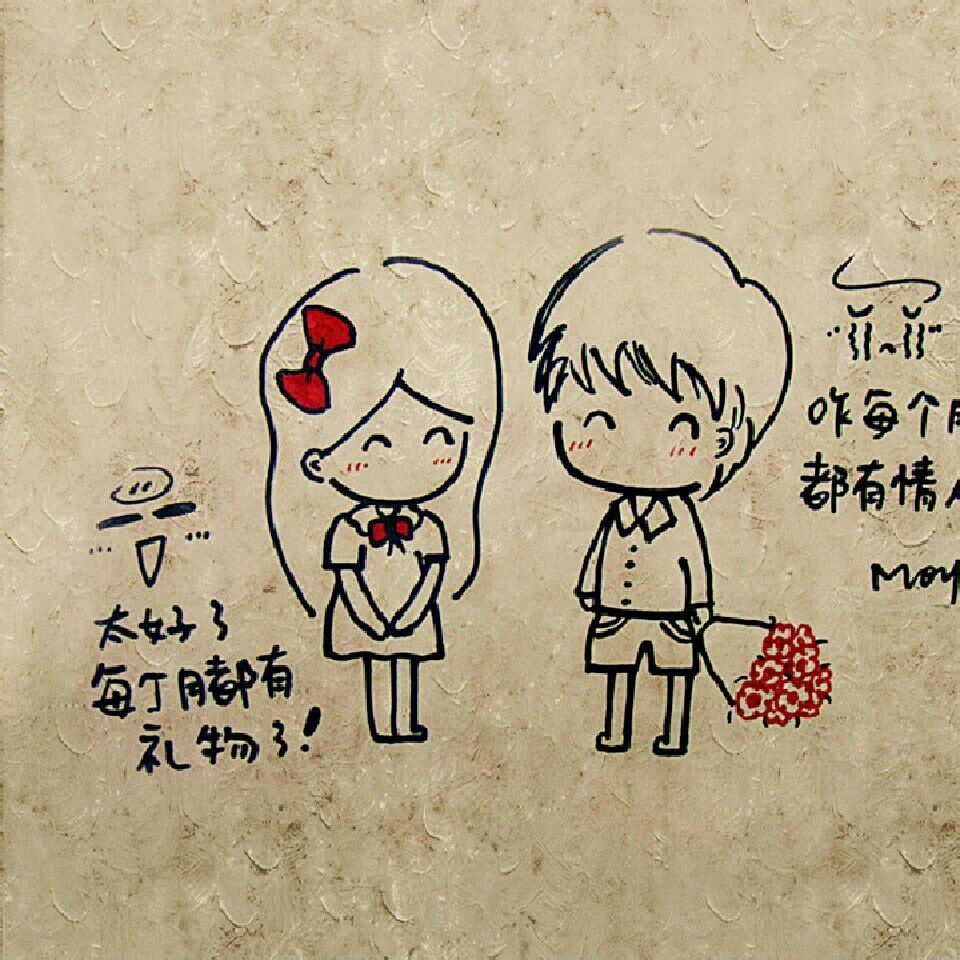 太好了
每个月都有
礼物了!
咋每个
都有情